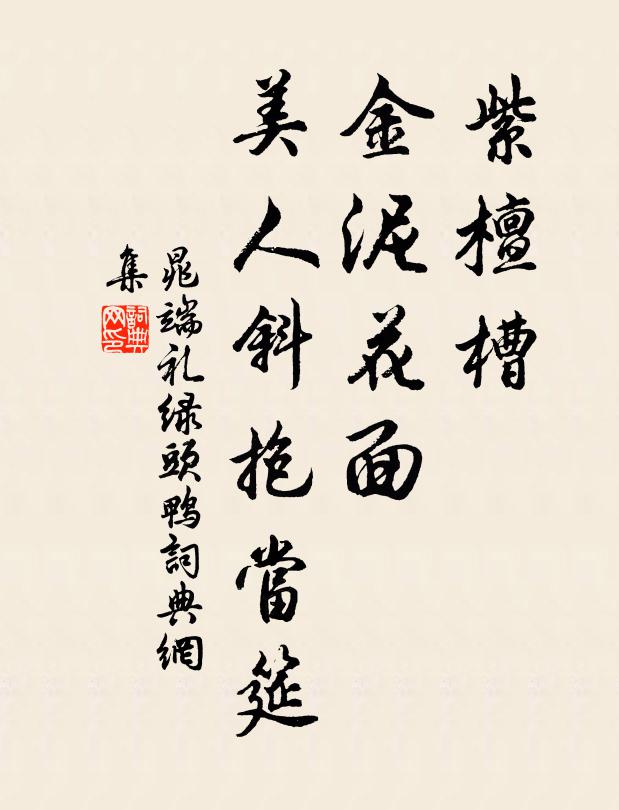 紫檀槽
金泥花面
美人斜抱當筵
晁端礼緑頭鴨詞典網
集
詞典网印